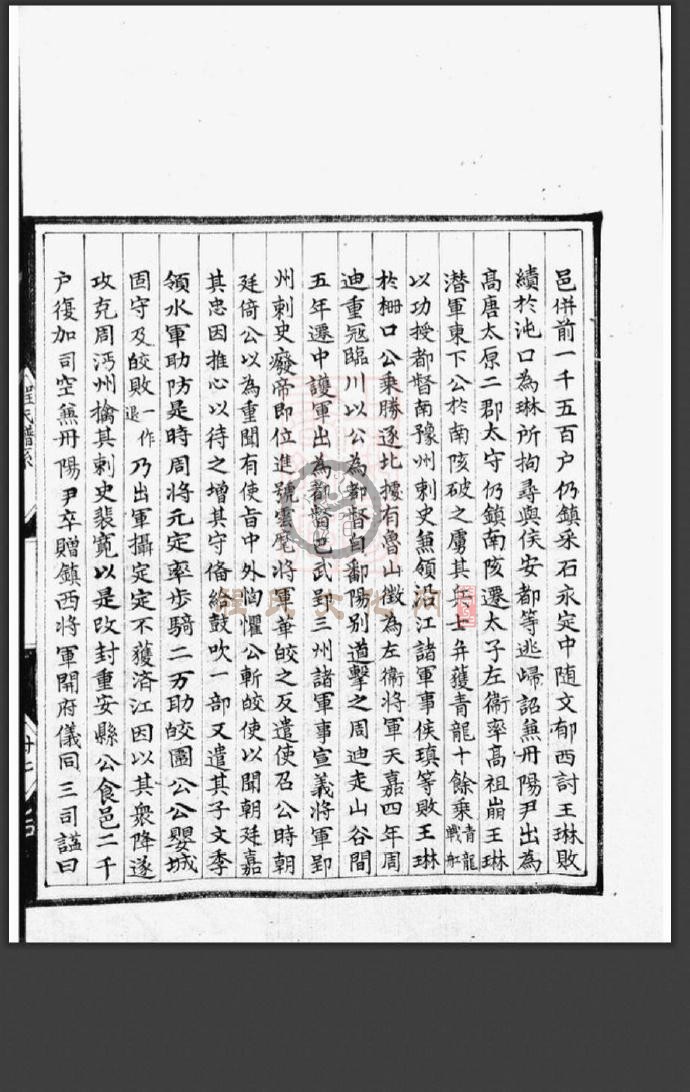 邑併前一千五百户仍鎮采石永定中随文郁西討王琳敗
績於沌口為琳所拘尋與侯安都等逃歸詔兼丹陽尹出為
高唐太原二郡太守仍鎮南陔還太子左衞率高祖崩王琳
潜軍東下公於南陔破之虜其兵士并獲青龍十餘乗青龍戰舡
以功授都督南豫州刺史兼領沿江諸軍事侯瑱等敗王琳
於栅口公乗勝逐北據有魯山徴為左衞將軍天嘉四年周
迪重冦臨川以公為都督自鄱陽别道擊之周迪走山谷間
五年遷中護軍出為都督巴武郢三州諸軍事宣義將軍郢
州刺史癈帝即位進號雲麾將軍華皎之反遣使召公時朝
廷倚公以為重聞有使旨中外恟懼公斬皎使以聞朝廷嘉
其忠因推心以待之增其守備給鼓吹一部又遣其子文季
領水軍助防是時周將元定率歩騎二万助皎圍公公嬰城
固守及皎敗一作退乃出軍攝定定不獲済江因以其衆降遂
攻克周沔州擒其刺史裴寛以是改封重安縣公食邑二千
户復加司空兼丹陽尹卒贈鎮西將軍開府儀同三司謚曰
程氏譜系
程氏文化網